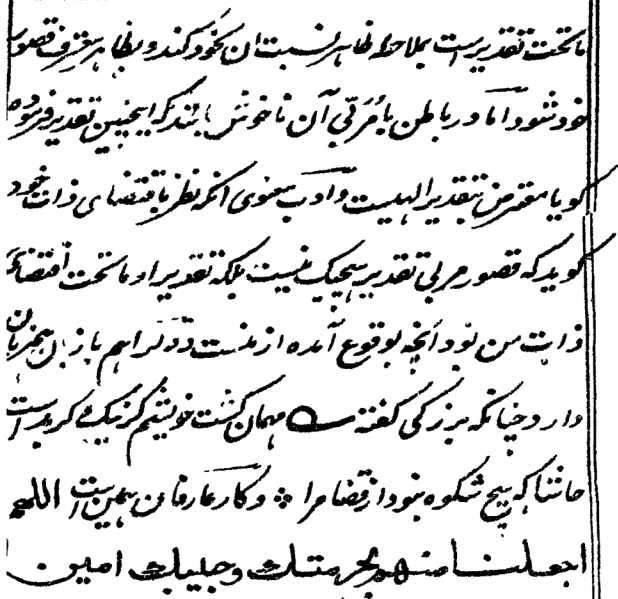 ماتحت تقدیرست بملاحظهٔ ظاهر نسبت ان بخود کند و بظاهر معترف قصور
خود شود اما در باطن با مُرَبّی آن ناخوش باشد که اینچنین تقدیر فرموده
کویا معترض بتقدیر الهیست و ادب معنوی انکه نظر باقتضای ذات خود
کوید که قصور مربی تقدیر هیچیک نیست بلکه تقدیر او ماتحت اقتضاء
ذات من بود انچه بوقوع آمده از منست دل را هم با زبان همزبان
دارد چنانکه بزرکی کفته مهمان کشت خویشم کر نیک کر بد است
حاشا که هیچ شکوه بود از قضا مرا و کار عارفان همین است اللهم
اجعلنا منهم بحرمتك وحبیبك امین